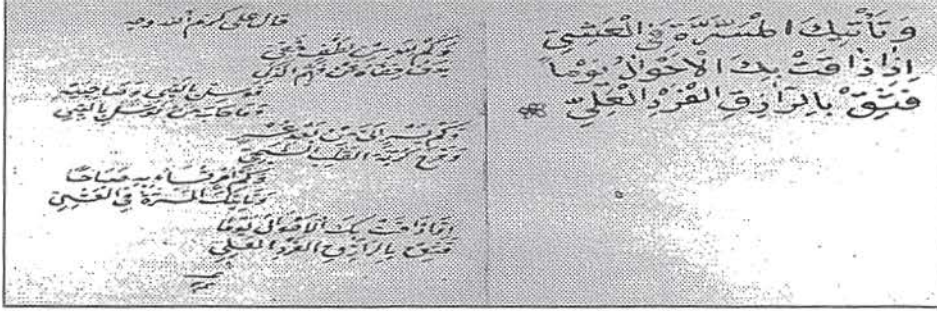 وَتَأْتِيكَ الْمَسَرَّةُ فِي الْعَشِيِّ
إِذَا ضَاقَتْ بِكَ الْأَحْوَالُ يَوْمًا
فَثِقْ بِالرَّازِقِ الْفَرْدِ الْعَلِيِّ
قال علي كرم الله وجه
وكم لله من لطف خفي
يدق خفاه عن فهم الذكي
توسل بالنبي
من توسل بالنبي
وكم يسر اتى من بعد عسر
كربة القلب الشجي
وكم امر تساء به صباحا
وتاتيك المسرة في العشي
اذا ضاقت بك الاحوال يوما
فثق بالرازق الفرد العلي